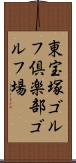 東宝塚ゴル
フ倶楽部ゴ
ルフ場